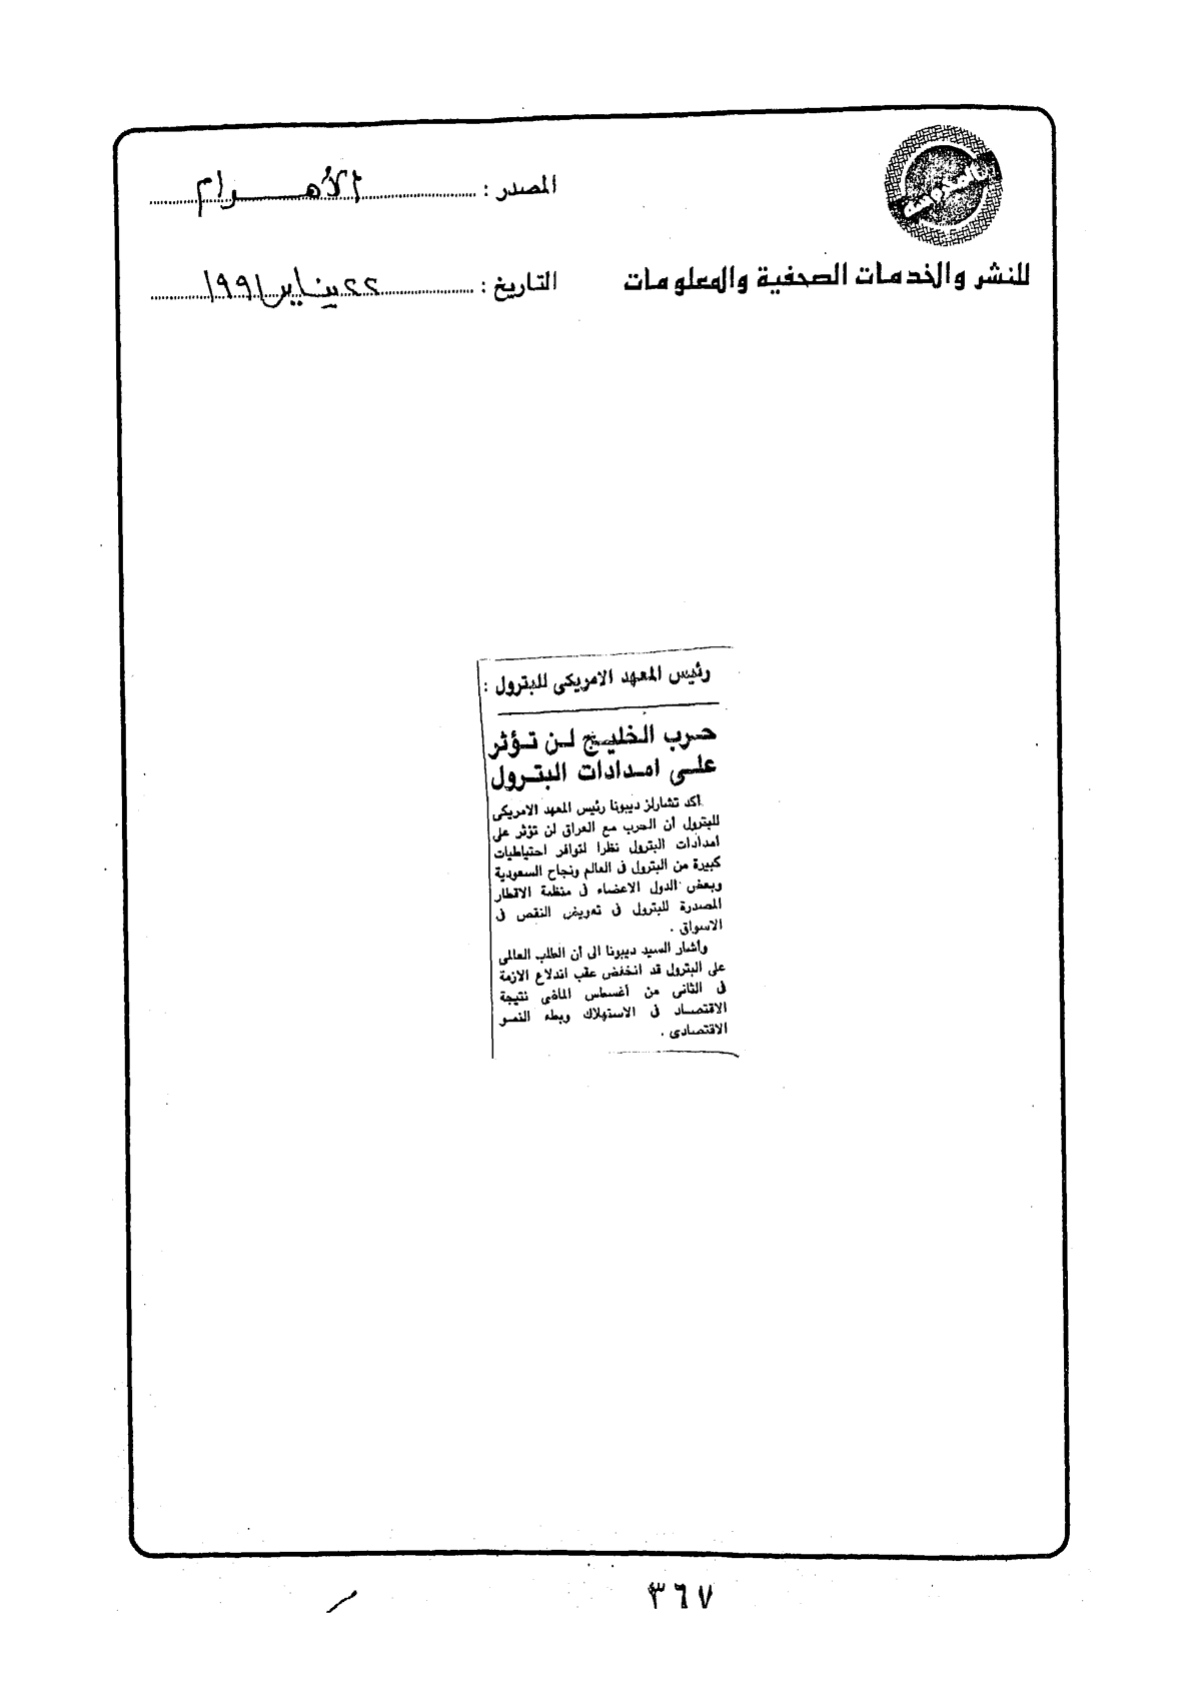 المصدر : الأهـــرام
للنشر والخدمات الصحفية والمعلومات
التاريخ : ٢٢ يناير ١٩٩١
رئيس المعهد الامريكى للبترول :
حـرب الخليـج لـن تـؤثر
علـى امـدادات البتـرول
أكد تشارلز ديبونا رئيس المعهد الامريكى
للبترول أن الحرب مع العراق لن تؤثر على
امدادات البترول نظرا لتوافر احتياطيات
كبيرة من البترول فى العالم ونجاح السعودية
وبعض الدول الاعضاء فى منظمة الاقطار
المصدرة للبترول فى تعويض النقص فى
الاسواق .
وأشار السيد ديبونا الى أن الطلب العالمى
على البترول قد انخفض عقب اندلاع الازمة
فى الثانى من أغسطس الماضى نتيجة
الاقتصـاد فى الاستهلاك وبطء النمـو
الاقتصادى .
٣٦٧